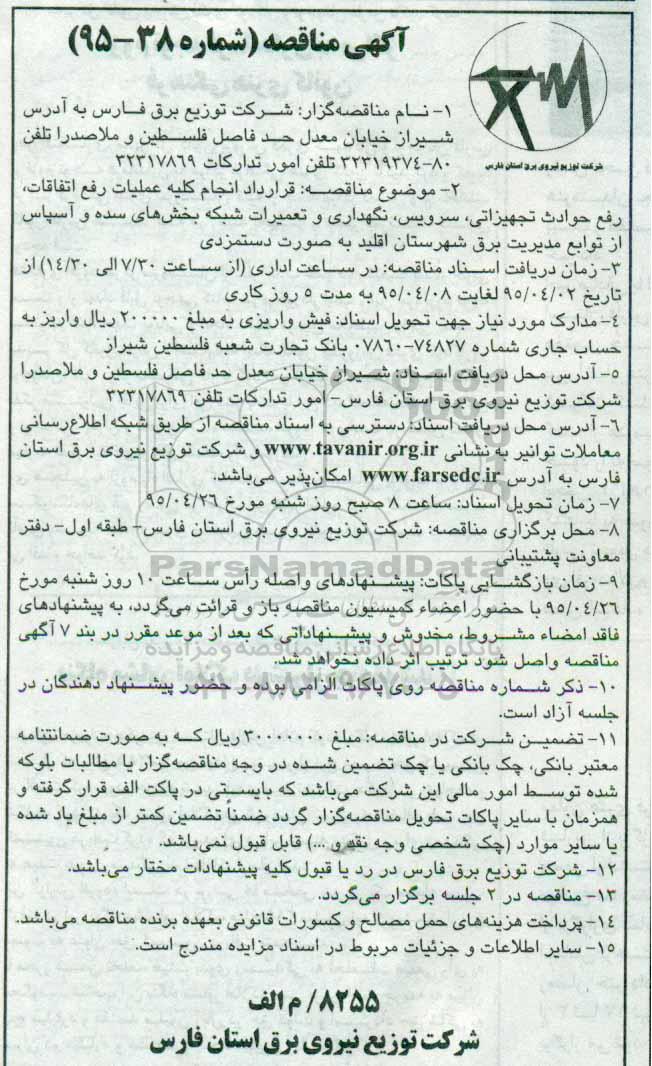 آگهی مناقصه (شماره ۳۸-۹۵)
شرکت توزیع نیروی برق استان فارس
۱- نام مناقصه‌گزار: شرکت توزیع برق فارس به آدرس
شیراز خیابان معدل حد فاصل فلسطین و ملاصدرا تلفن
۸۰-۳۲۳۱۹۳۷۴ تلفن امور تدارکات ۳۲۳۱۷۸۶۹
۲- موضوع مناقصه: قرارداد انجام کلیه عملیات رفع اتفاقات،
رفع حوادث تجهیزاتی، سرویس، نگهداری و تعمیرات شبکه بخش‌های سده و آسپاس
از توابع مدیریت برق شهرستان اقلید به صورت دستمزدی
۳- زمان دریافت اسناد مناقصه: در ساعت اداری (از ساعت ۷/۳۰ الی ۱۴/۳۰) از
تاریخ ۹۵/۰۴/۰۲ لغایت ۹۵/۰۴/۰۸ به مدت ۵ روز کاری
۴- مدارک مورد نیاز جهت تحویل اسناد: فیش واریزی به مبلغ ۲۰۰۰۰۰ ریال واریز به
حساب جاری شماره ۷۴۸۲۷-۰۷۸۶۰ بانک تجارت شعبه فلسطین شیراز
۵- آدرس محل دریافت اسناد: شیراز خیابان معدل حد فاصل فلسطین و ملاصدرا
شرکت توزیع نیروی برق استان فارس- امور تدارکات تلفن ۳۲۳۱۷۸۶۹
۶- آدرس محل دریافت اسناد: دسترسی به اسناد مناقصه از طریق شبکه اطلاع‌رسانی
معاملات توانیر به نشانی www.tavanir.org.ir و شرکت توزیع نیروی برق استان
فارس به آدرس www.farsedc.ir امکان‌پذیر می‌باشد.
۷- زمان تحویل اسناد: ساعت ۸ صبح روز شنبه مورخ ۹۵/۰۴/۲۶
۸- محل برگزاری مناقصه: شرکت توزیع نیروی برق استان فارس- طبقه اول- دفتر
معاونت پشتیبانی
ParsNamadData
۹- زمان بازگشایی پاکات: پیشنهادهای واصله رأس ساعت ۱۰ روز شنبه مورخ
۹۵/۰۴/۲۶ با حضور اعضاء کمیسیون مناقصه باز و قرائت می‌گردد، به پیشنهادهای
فاقد امضاء مشروط، مخدوش و پیشنهاداتی که بعد از موعد مقرر در بند ۷ آگهی
مناقصه واصل شود ترتیب اثر داده نخواهد شد.
۱۰- ذکر شماره مناقصه روی پاکات الزامی بوده و حضور پیشنهاد دهندگان در
جلسه آزاد است.
۱۱- تضمین شرکت در مناقصه: مبلغ ۳۰۰۰۰۰۰۰ ریال که به صورت ضمانتنامه
معتبر بانکی، چک بانکی یا چک تضمین شده در وجه مناقصه‌گزار یا مطالبات بلوکه
شده توسط امور مالی این شرکت می‌باشد که بایستی در پاکت الف قرار گرفته و
همزمان با سایر پاکات تحویل مناقصه‌گزار گردد ضمناً تضمین کمتر از مبلغ یاد شده
یا سایر موارد (چک شخصی وجه نقد، ...) قابل قبول نمی‌باشد.
۱۲- شرکت توزیع برق فارس در رد یا قبول کلیه پیشنهادات مختار می‌باشد.
۱۳- مناقصه در ۲ جلسه برگزار می‌گردد.
۱۴- پرداخت هزینه‌های حمل مصالح و کسورات قانونی بعهده برنده مناقصه می‌باشد.
۱۵- سایر اطلاعات و جزئیات مربوط در اسناد مزایده مندرج است.
۸۲۵۵/ م الف
شرکت توزیع نیروی برق استان فارس